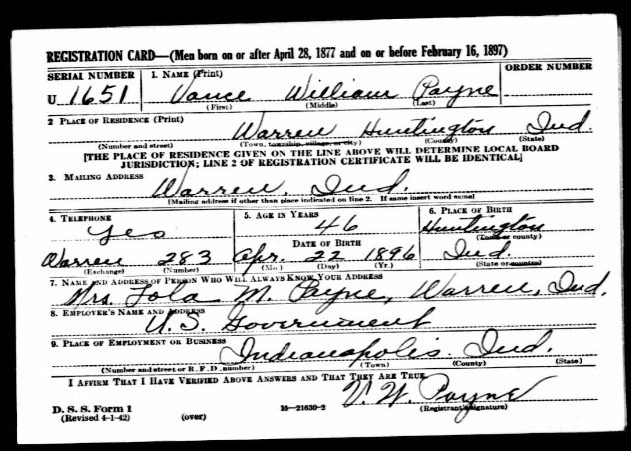 REGISTRATION CARD—(Men born on or after April 28, 1877 and on or before February 16, 1897)
SERIAL NUMBER 1. NAME (Print) ORDER NUMBER
U 1651 Vance William Payne
(First) (Middle) (Last)
2 PLACE OF RESIDENCE (Print)
Warren Huntington Ind.
(Number and street) (Town, township, village, or city) (County) (State)
[THE PLACE OF RESIDENCE GIVEN ON THE LINE ABOVE WILL DETERMINE LOCAL BOARD
JURISDICTION; LINE 2 OF REGISTRATION CERTIFICATE WILL BE IDENTICAL]
3. MAILING ADDRESS
Warren, Ind.
[Mailing address if other than place indicated on line 2. If same insert word same]
4. TELEPHONE 5. AGE IN YEARS 6. PLACE OF BIRTH
Yes 46 Huntington
DATE OF BIRTH (Town or county)
Warren 283 Apr. 22 1896 Ind.
(Exchange) (Number) (Mo.) (Day) (Yr.) (State or country)
7. NAME AND ADDRESS OF PERSON WHO WILL ALWAYS KNOW YOUR ADDRESS
Mrs. Lola M. Payne, Warren, Ind.
8. EMPLOYER'S NAME AND ADDRESS
U.S. Government
9. PLACE OF EMPLOYMENT OR BUSINESS
Indianapolis Ind.
(Number and street or R. F. D. number) (Town) (County) (State)
I AFFIRM THAT I HAVE VERIFIED ABOVE ANSWERS AND THAT THEY ARE TRUE.
V. W. Payne
D. S. S. Form 1 16—21630-2 (Registrant's signature)
(Revised 4-1-42) (over)